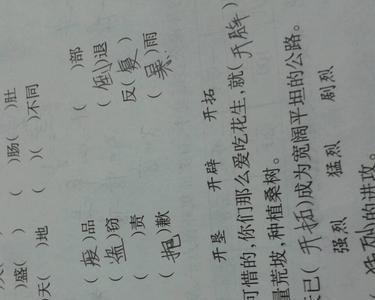 )盛( ) ( )肠( )肚
天( )地 ( )( )不同
( 废 )品 ( )部
( 盗 )窃 ( 倒 )退
( )责 反( 复 )
( 抱 )歉 ( )雨
开垦 开辟 开拓
可惜的,你们那么爱吃花生,就( 开辟 )
量荒坡,种植桑树。
已( 开拓 )成为宽阔平坦的公路。
强烈 猛烈 剧烈
猛烈的进攻。